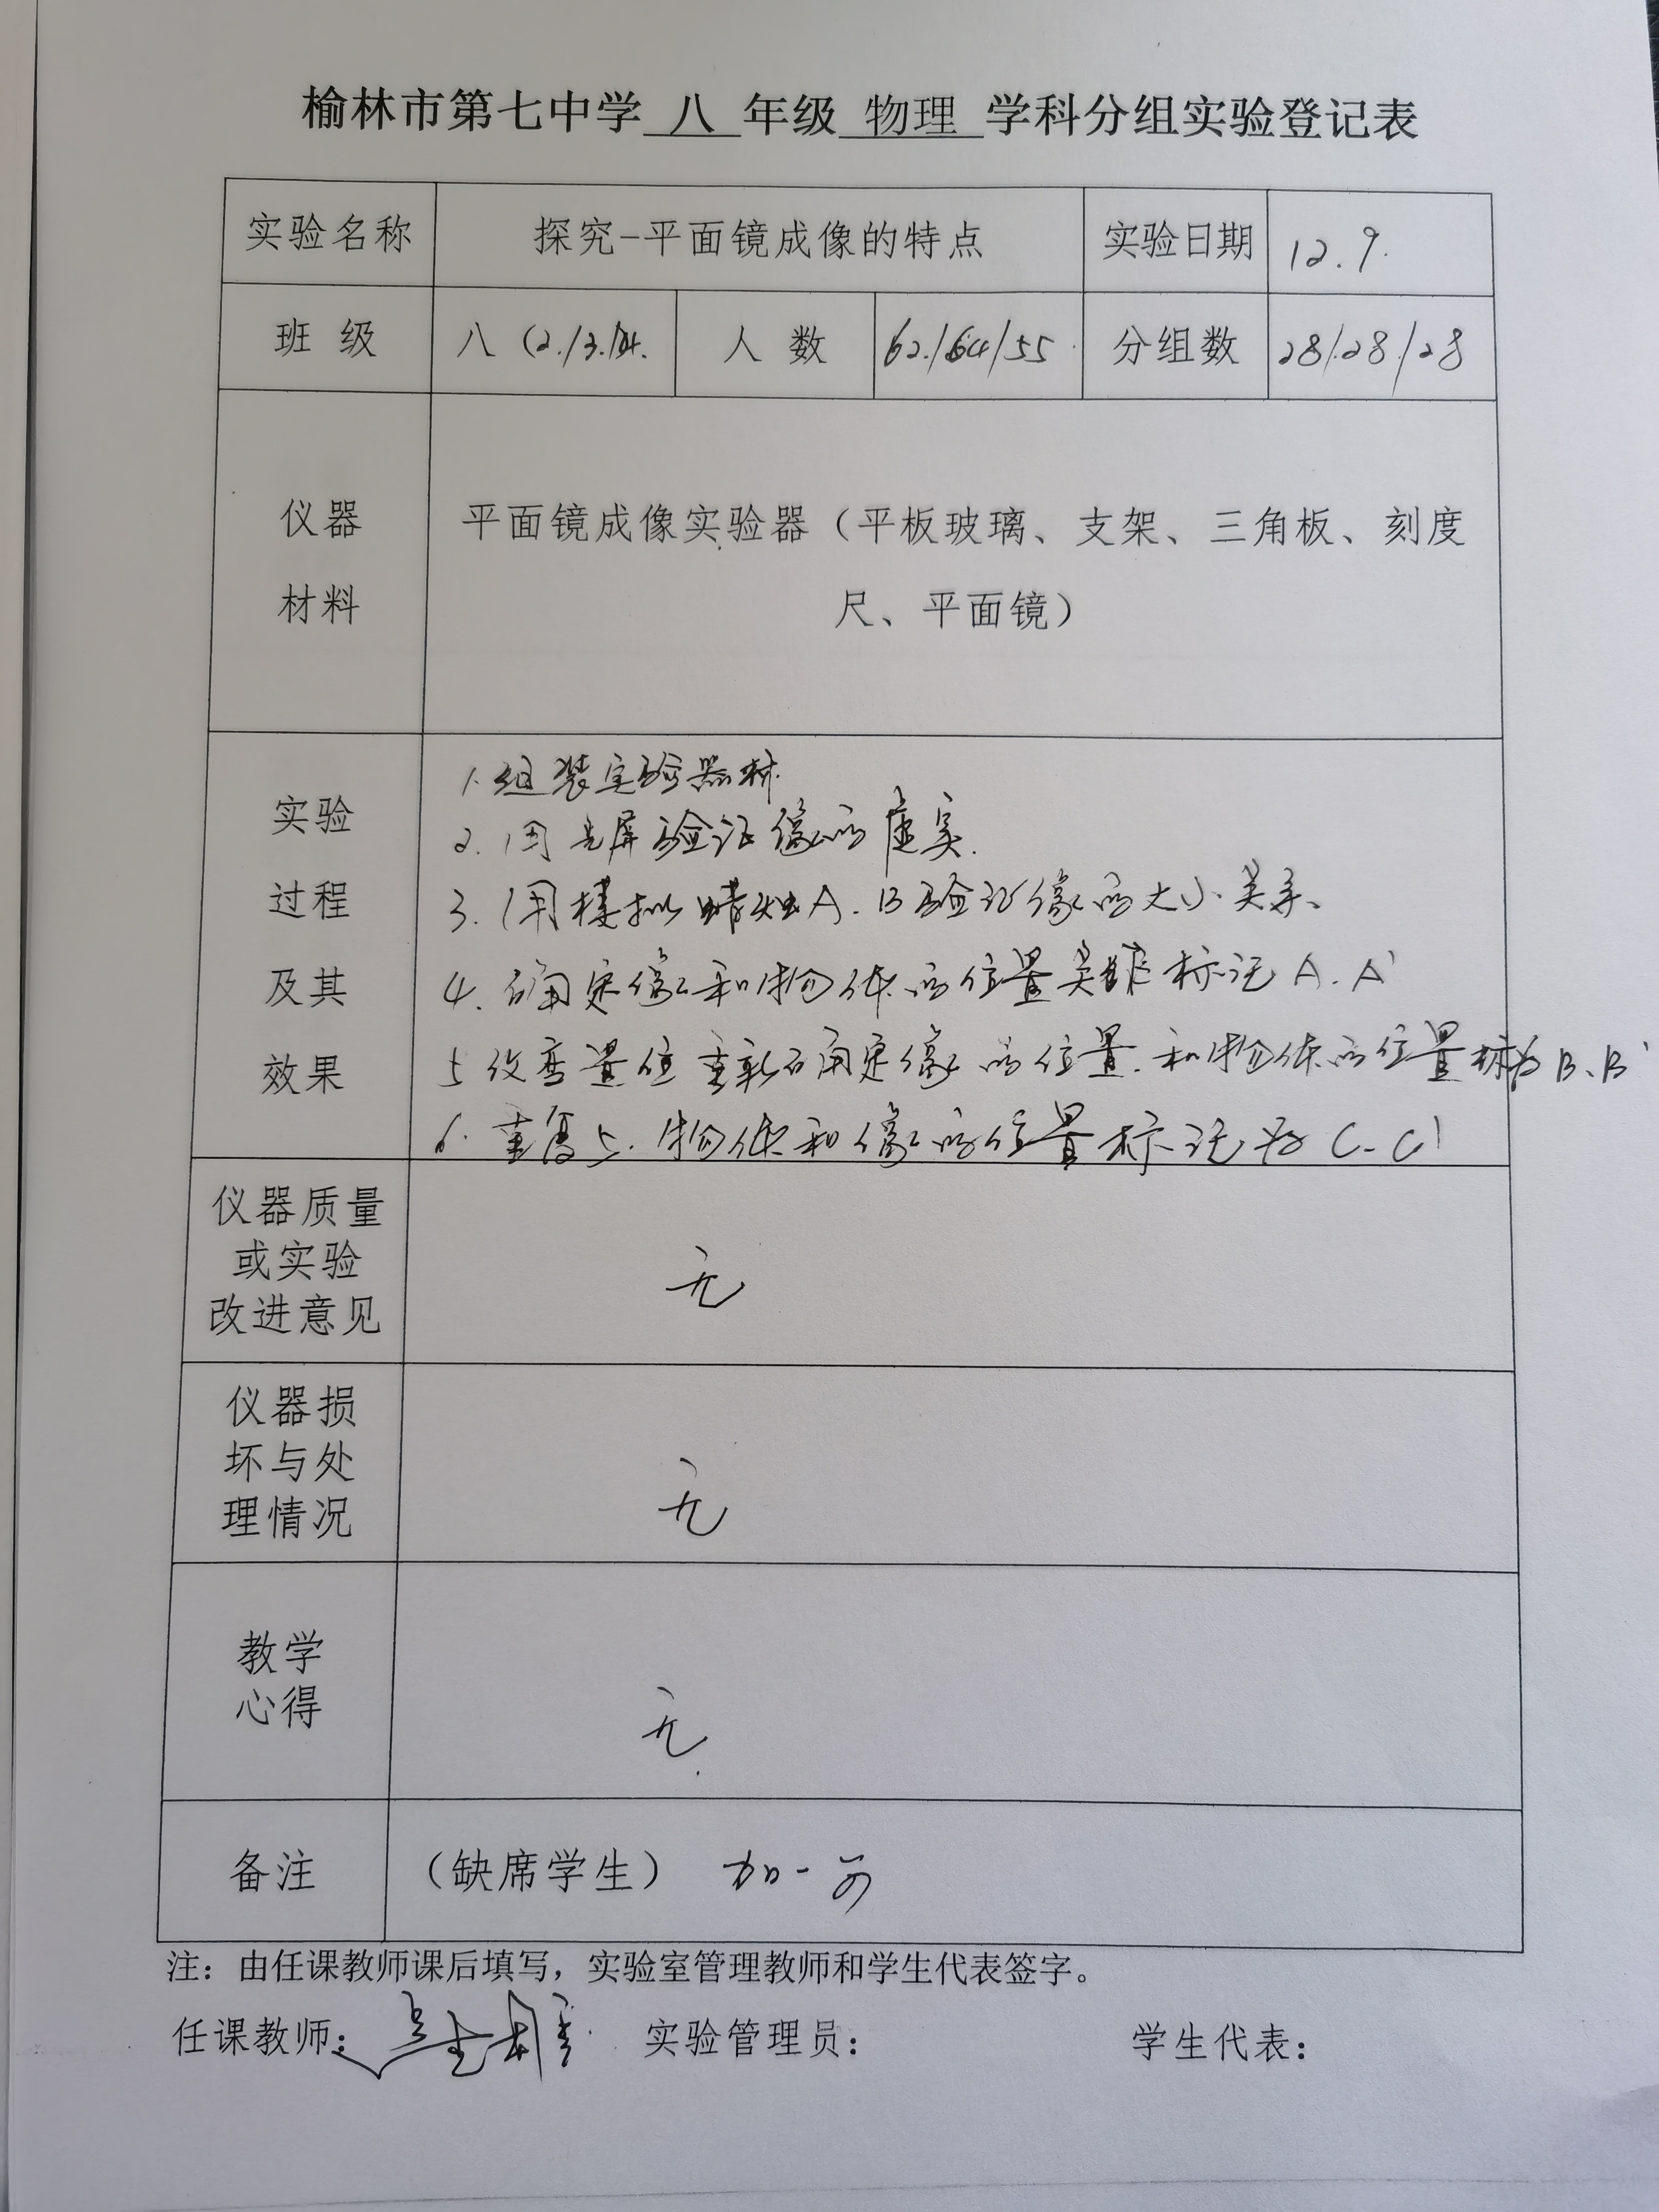 榆林市第七中学 八 年级 物理 学科分组实验登记表
实验名称 探究-平面镜成像的特点 实验日期 12.9.
班 级 八（2./3./14. 人 数 62./64/55 分组数 28/28/28
仪器
材料
平面镜成像实验器（平板玻璃、支架、三角板、刻度
尺、平面镜）
实验
过程
及其
效果
1.组装实验器材.
2.用光屏验证像的虚实.
3.用模拟蜡烛A.B验证像的大小关系、
4.确定像和物体的位置关系 标记A.A'
5 改变置位重新确定像的位置.和物体的位置标为B、B'
6.重复5.物体和像的位置标记为C-C'
仪器质量
或实验
改进意见
无
仪器损
坏与处
理情况
无
教学
心得
无.
备注 （缺席学生）
注：由任课教师课后填写，实验室管理教师和学生代表签字。
任课教师： 实验管理员： 学生代表：